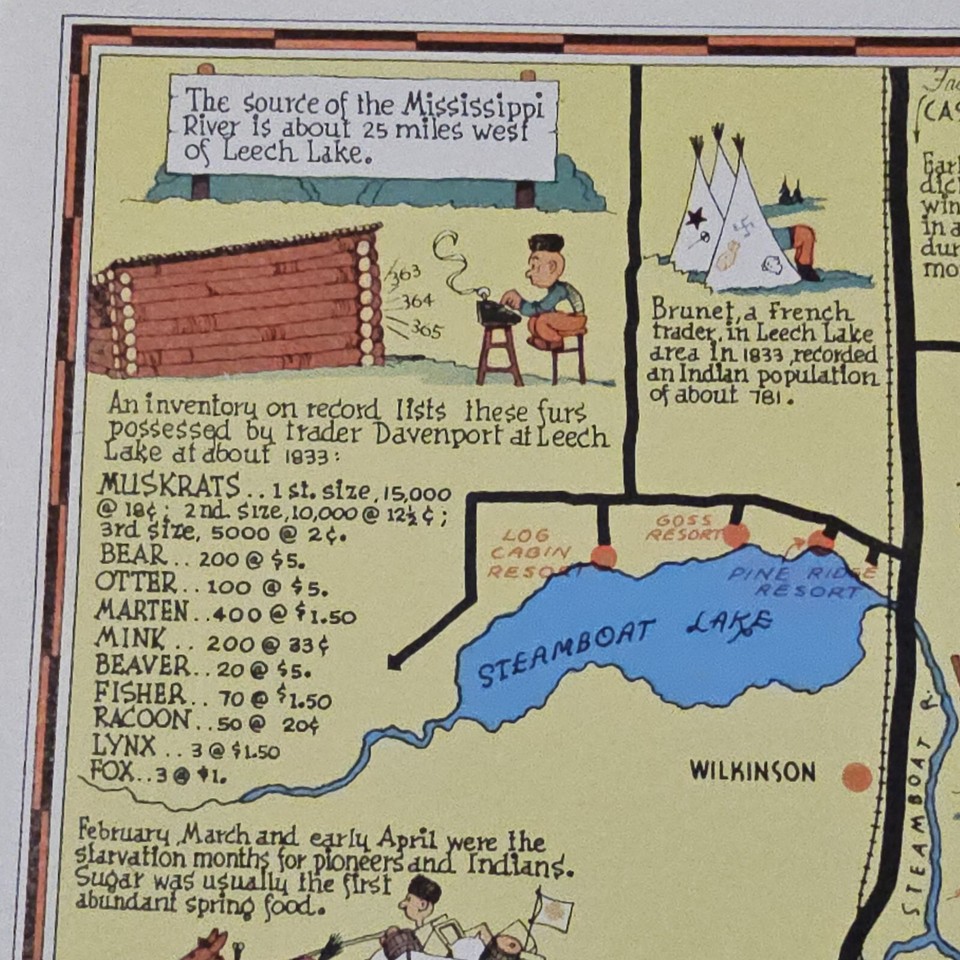 The source of the Mississippi
River is about 25 miles west
of Leech Lake.
363
364
365
An inventory on record lists these furs
possessed by trader Davenport at Leech
Lake at about 1833:
MUSKRATS.. 1 st. size, 15,000
@ 18¢; 2nd. size, 10,000 @ 12½¢;
3rd size, 5000 @ 2¢.
BEAR.. 200 @ $5.
OTTER.. 100 @ $5.
MARTEN..400 @ $1.50
MINK.. 200 @ 33¢
BEAVER..20 @ $5.
FISHER.. 70 @ $1.50
RACOON..50 @ 20¢
LYNX .. 3 @ $1.50
FOX..3 @ $1.
February, March and early April were the
starvation months for pioneers and Indians.
Sugar was usually the first
abundant spring food.
Brunet, a French
trader, in Leech Lake
area in 1833, recorded
an Indian population
of about 781.
LOG
CABIN
RESORT
GOSS
RESORT
PINE RIDGE
RESORT
STEAMBOAT LAKE
WILKINSON
STEAMBOAT R.